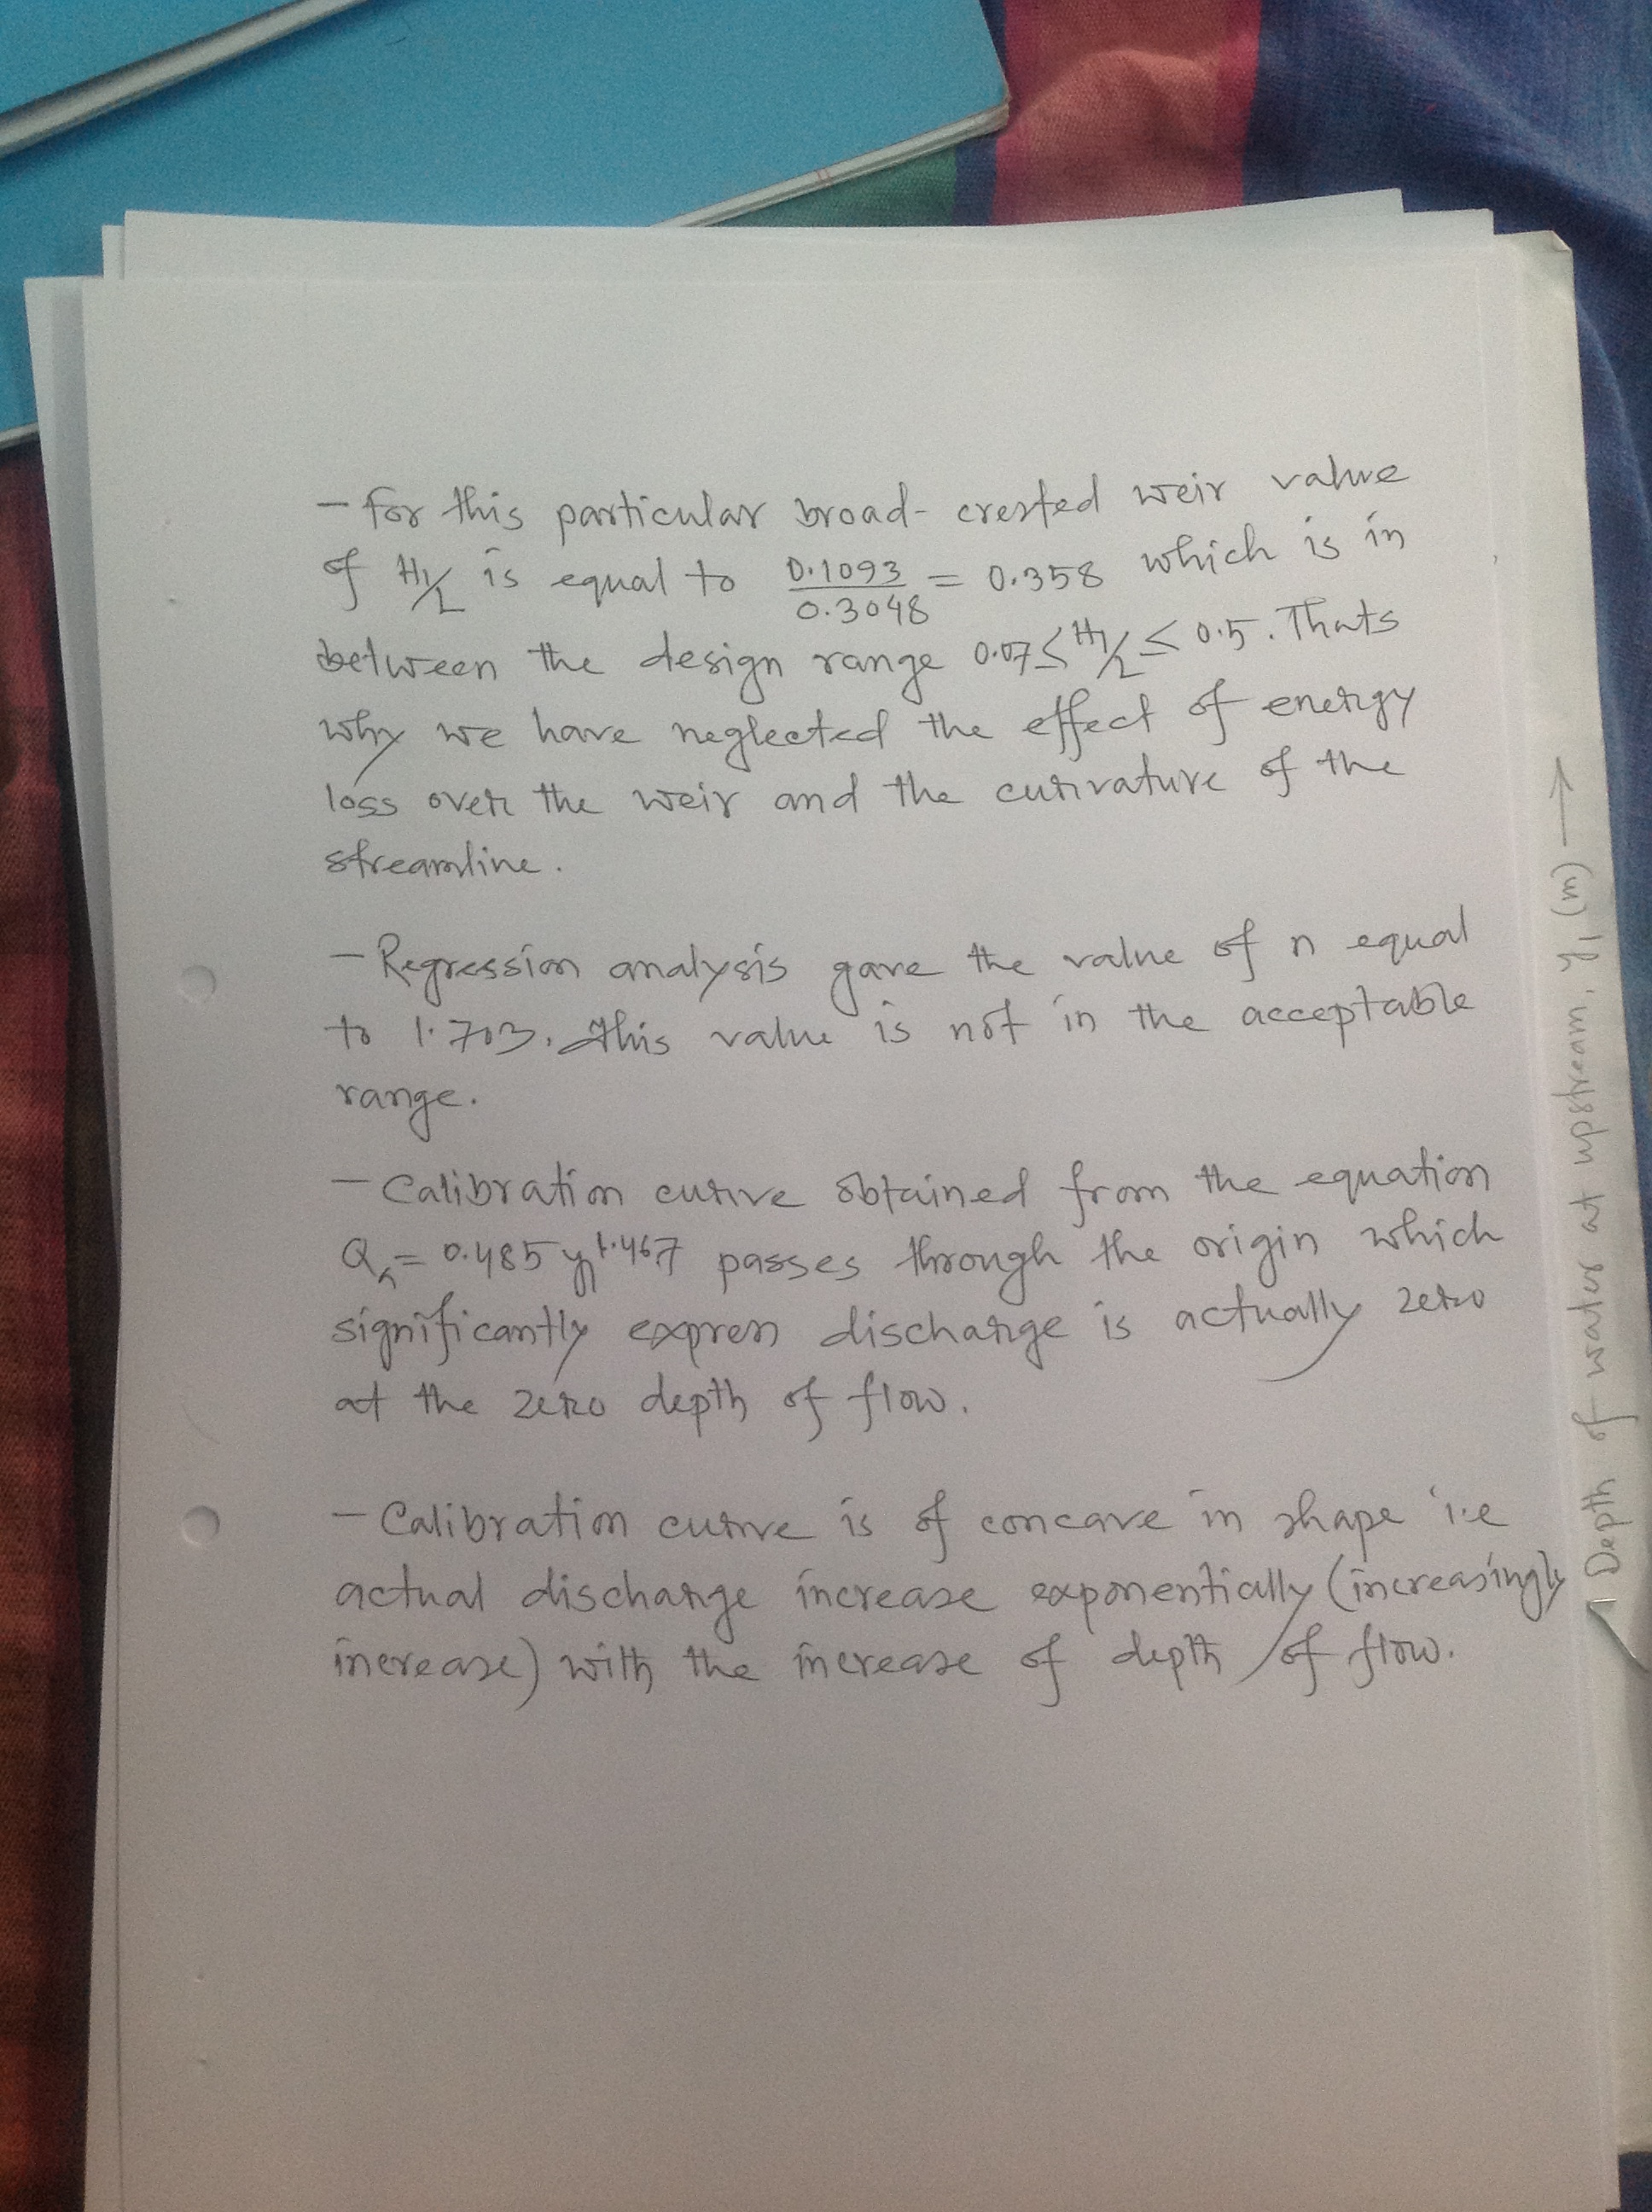 - For this particular broad-crested weir value
of H1/L is equal to 0.1093/0.3048 = 0.358 which is in
between the design range 0.07 ≤ H1/L ≤ 0.5. Thats
why we have neglected the effect of energy
loss over the weir and the curvature of the
streamline.
- Regression analysis gave the value of n equal
to 1.703. This value is not in the acceptable
range.
- Calibration curve obtained from the equation
Qa = 0.485 y1^1.467 passes through the origin which
significantly express discharge is actually zero
at the zero depth of flow.
- Calibration curve is of concave in shape i.e
actual discharge increase exponentially (increasingly
increase) with the increase of depth of flow.
Depth of water at upstream, y1 (m) →